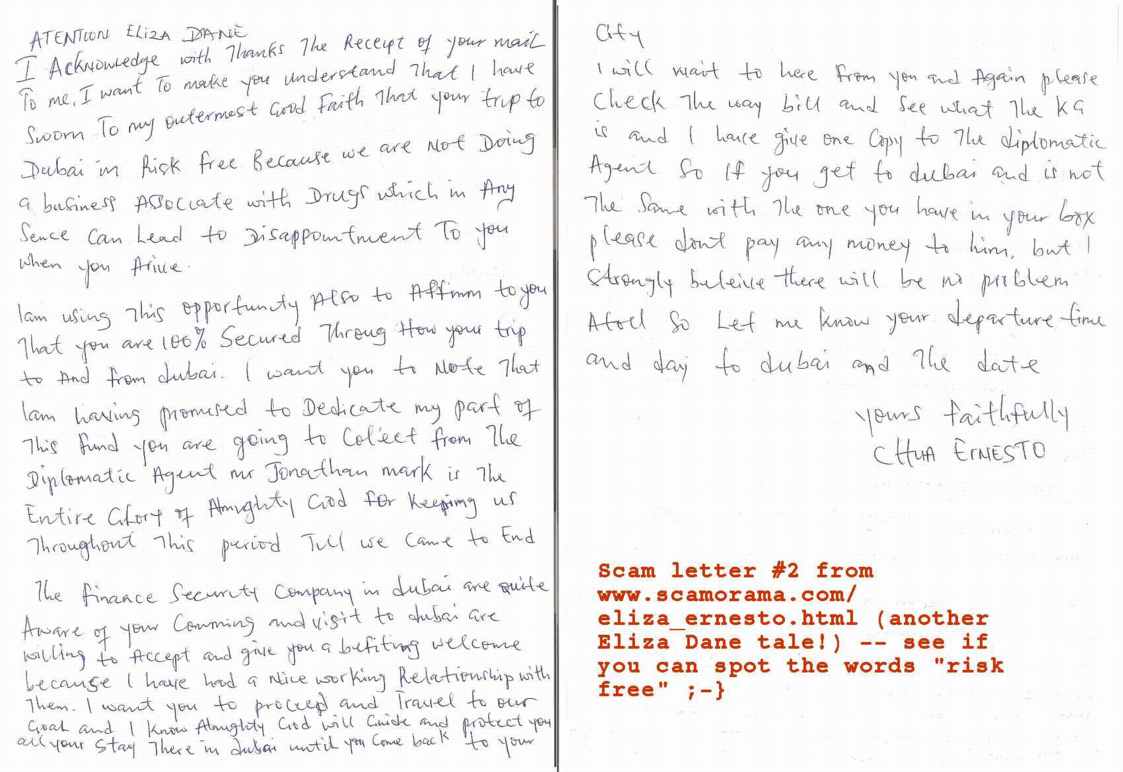 ATENTION ELIZA DANE
I Acknowledge with Thanks The Receipt of your mail
To me, I want To make you understand That I have
Sworn To my outermost Good Faith That your trip to
Dubai in Risk free Because we are Not Doing
a business Associate with Drugs which in Any
Sence Can Lead to Disappointment To you
when you Arive.
Iam using This opportunity Also to Affimm to you
That you are 100% Secured Throug How your trip
to And from dubai. I want you to Note That
Iam having promised to Dedicate my part of
This fund you are going to Colect from The
Diplomatic Agent mr Jonathan mark is The
Entire Glory of Almighty God for Keeping us
Throughout This period Till we Came to End
The finance Security Company in dubai are quite
Aware of your Comming and visit to dubai are
willing to Accept and give you a befiting welcome
because I have had a Nice working Relationship with
Them. I want you to proceed and Travel to our
Goal and I Know Almughty God will Guide and protect you
all your Stay There in dubai until you Come back to your
City
I will wait to here from you and Again please
Check The way bill and See what The KG
is and I have give one Copy to The diplomatic
Agent So If you get to dubai and is not
The Same with The one you have in your box
please dont pay any money to him, but I
Strongly beleive there will be no problem
Atoll So Let me know your departure time
and day to dubai and The date
yours faithfully
CHUA ERNESTO
Scam letter #2 from
www.scamorama.com/
eliza_ernesto.html (another
Eliza Dane tale!) -- see if
you can spot the words "risk
free" ;-}